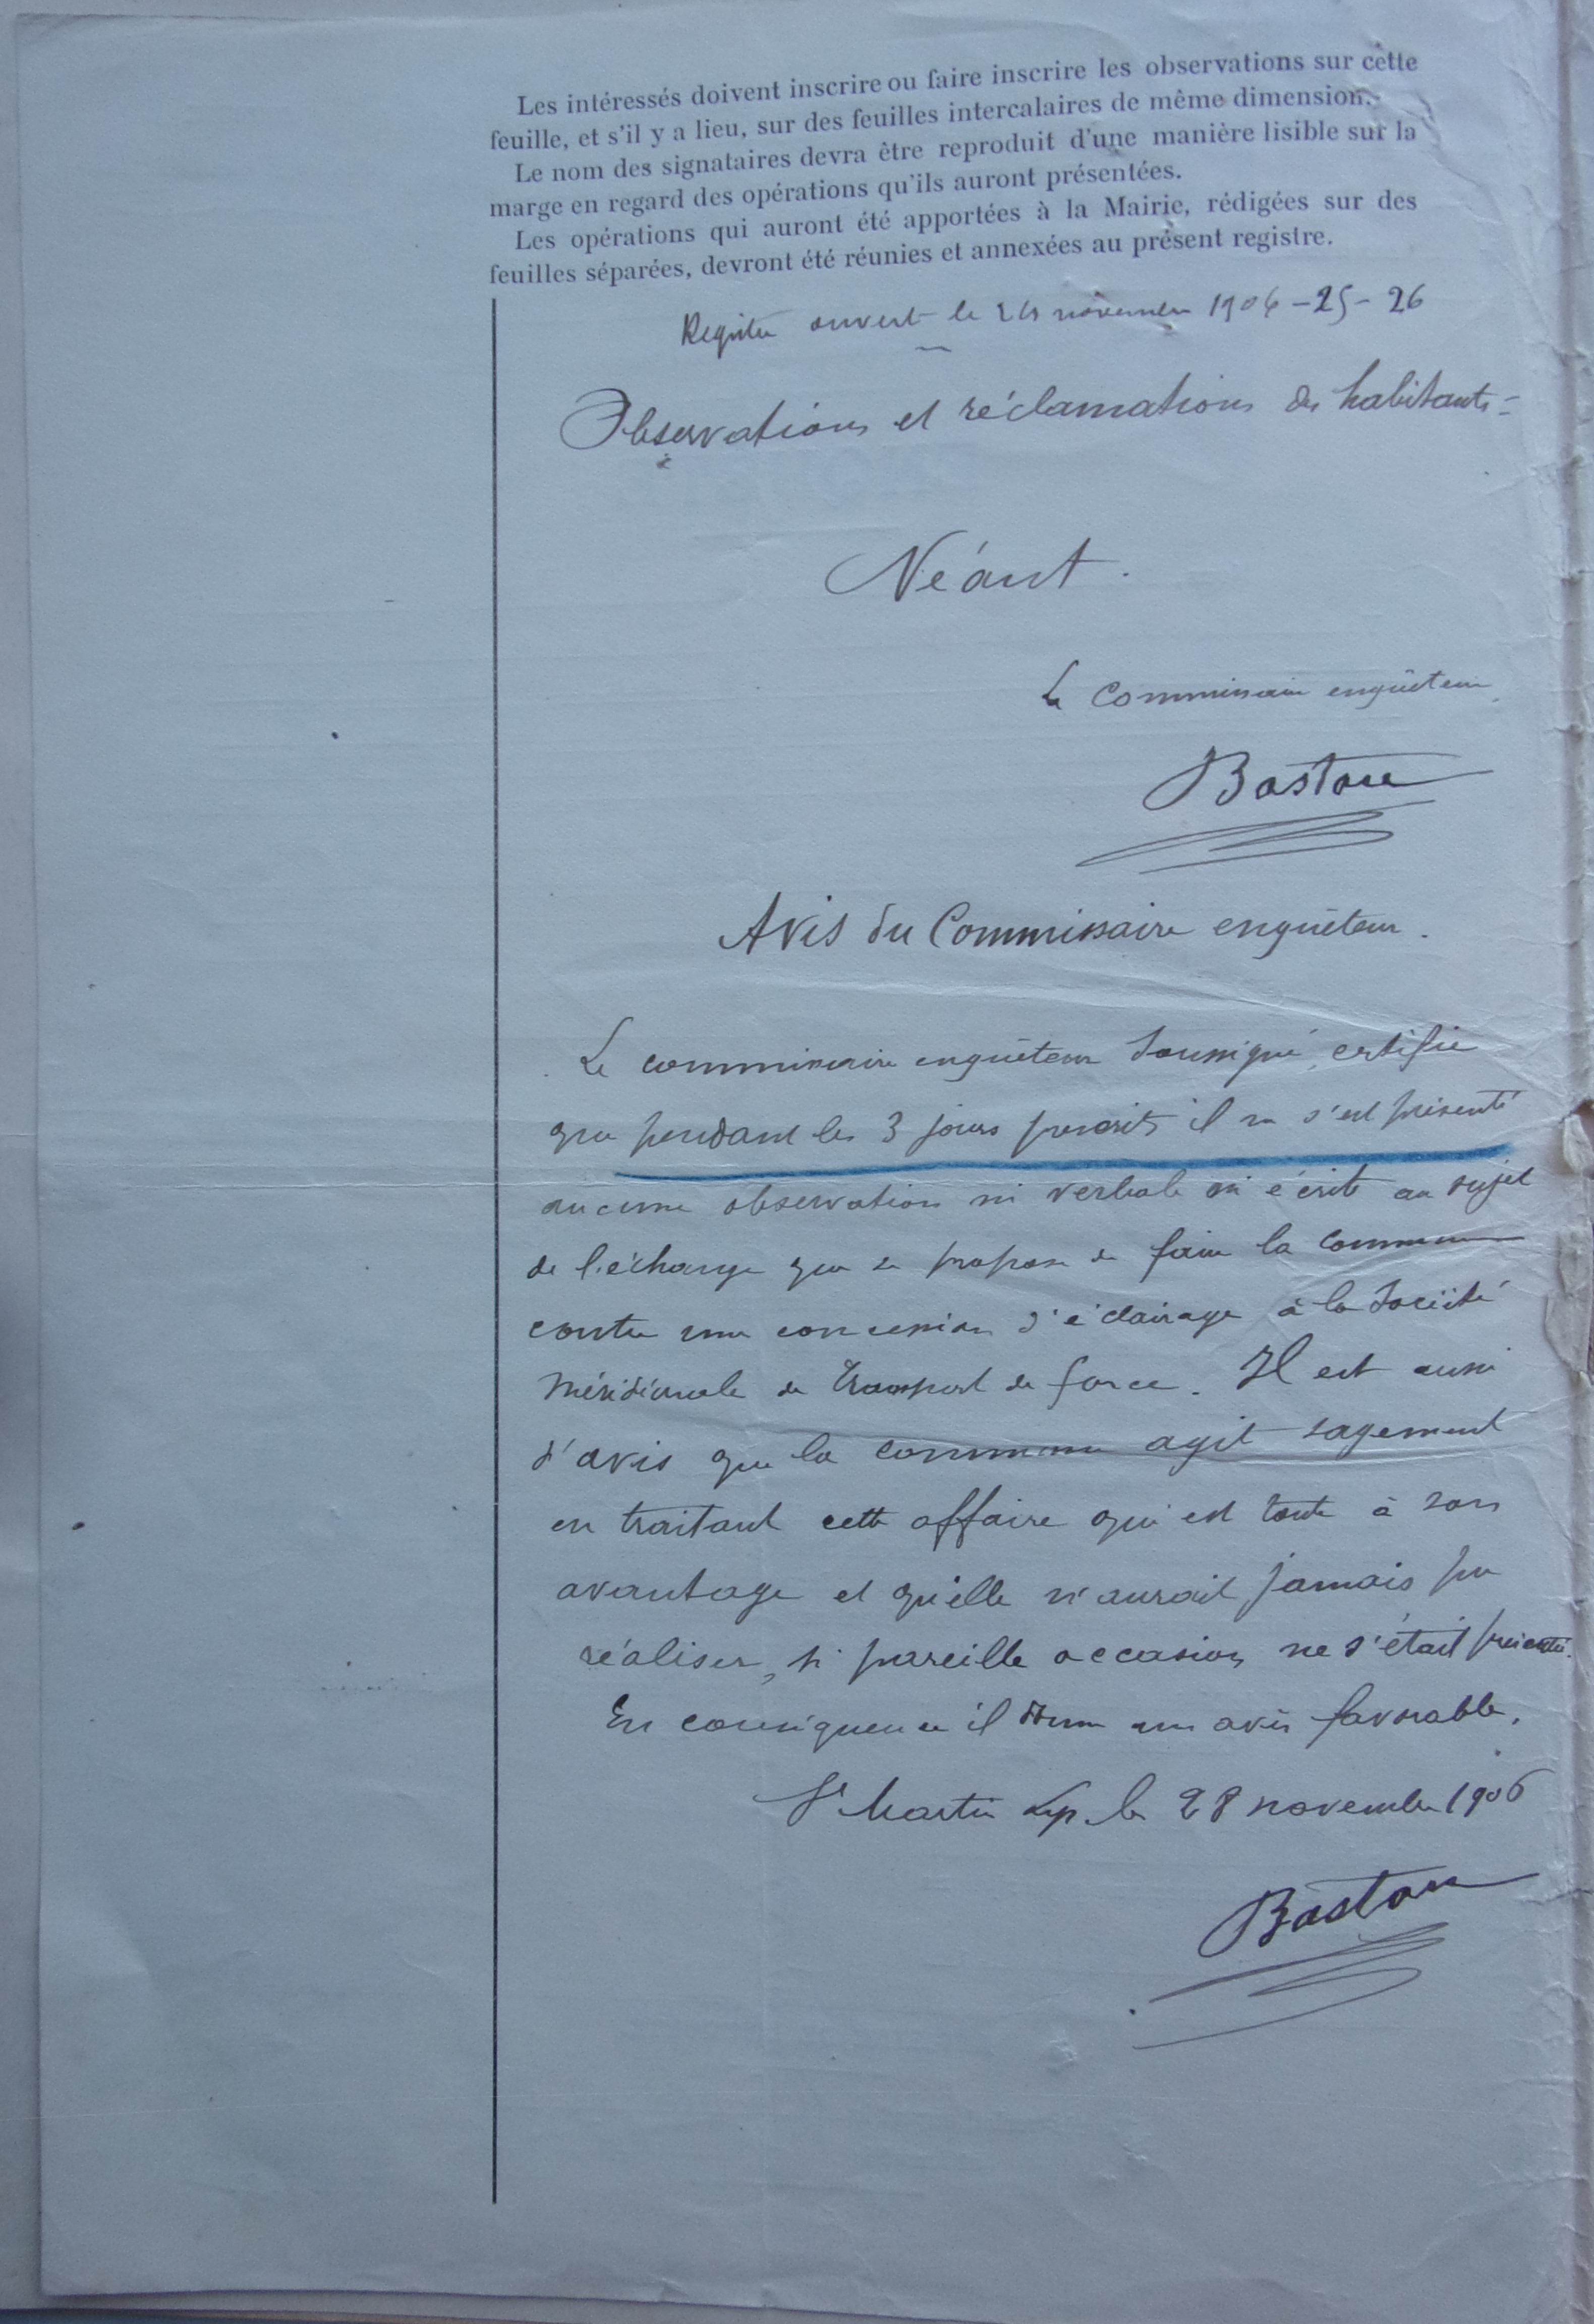 Les intéressés doivent inscrire ou faire inscrire les observations sur cette
feuille, et s'il y a lieu, sur des feuilles intercalaires de même dimension.
Le nom des signataires devra être reproduit d'une manière lisible sur la
marge en regard des opérations qu'ils auront présentées.
Les opérations qui auront été apportées à la Mairie, rédigées sur des
feuilles séparées, devront été réunies et annexées au présent registre.
Registre ouvert le 24 novembre 1906 - 25 - 26
Observations et réclamations des habitants -
Néant.
Le Commissaire enquêteur
Bastou
Avis du Commissaire enquêteur.
Le commissaire enquêteur soussigné, certifie
que pendant les 3 jours prescrits il ne s'est présenté
aucune observation ni verbale ni écrite au sujet
de l'échange que se propose de faire la commune
contre une concession d'éclairage à la Société
Méridionale de Transport de force. Il est aussi
d'avis que la commune agit sagement
en traitant cette affaire qui est toute à son
avantage et qu'elle n'aurait jamais pu
réaliser, si pareille occasion ne s'était présentée.
En conséquence il donne un avis favorable.
St Martin Lys le 28 novembre 1906
Bastou